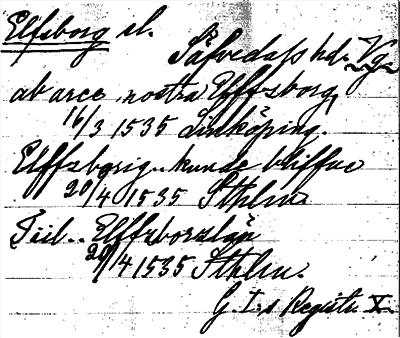 Elfsborg sl.
Säfvedals hd. Vg.
ab arce nostra Elffzborg
16/3 1535 Linköping.
Elffzborig.. kunde bliffue
20/4 1535 Sthlm
Till.. Elffzborszlän
20/4 1535 Sthlm.
G. I:s Registr. X.